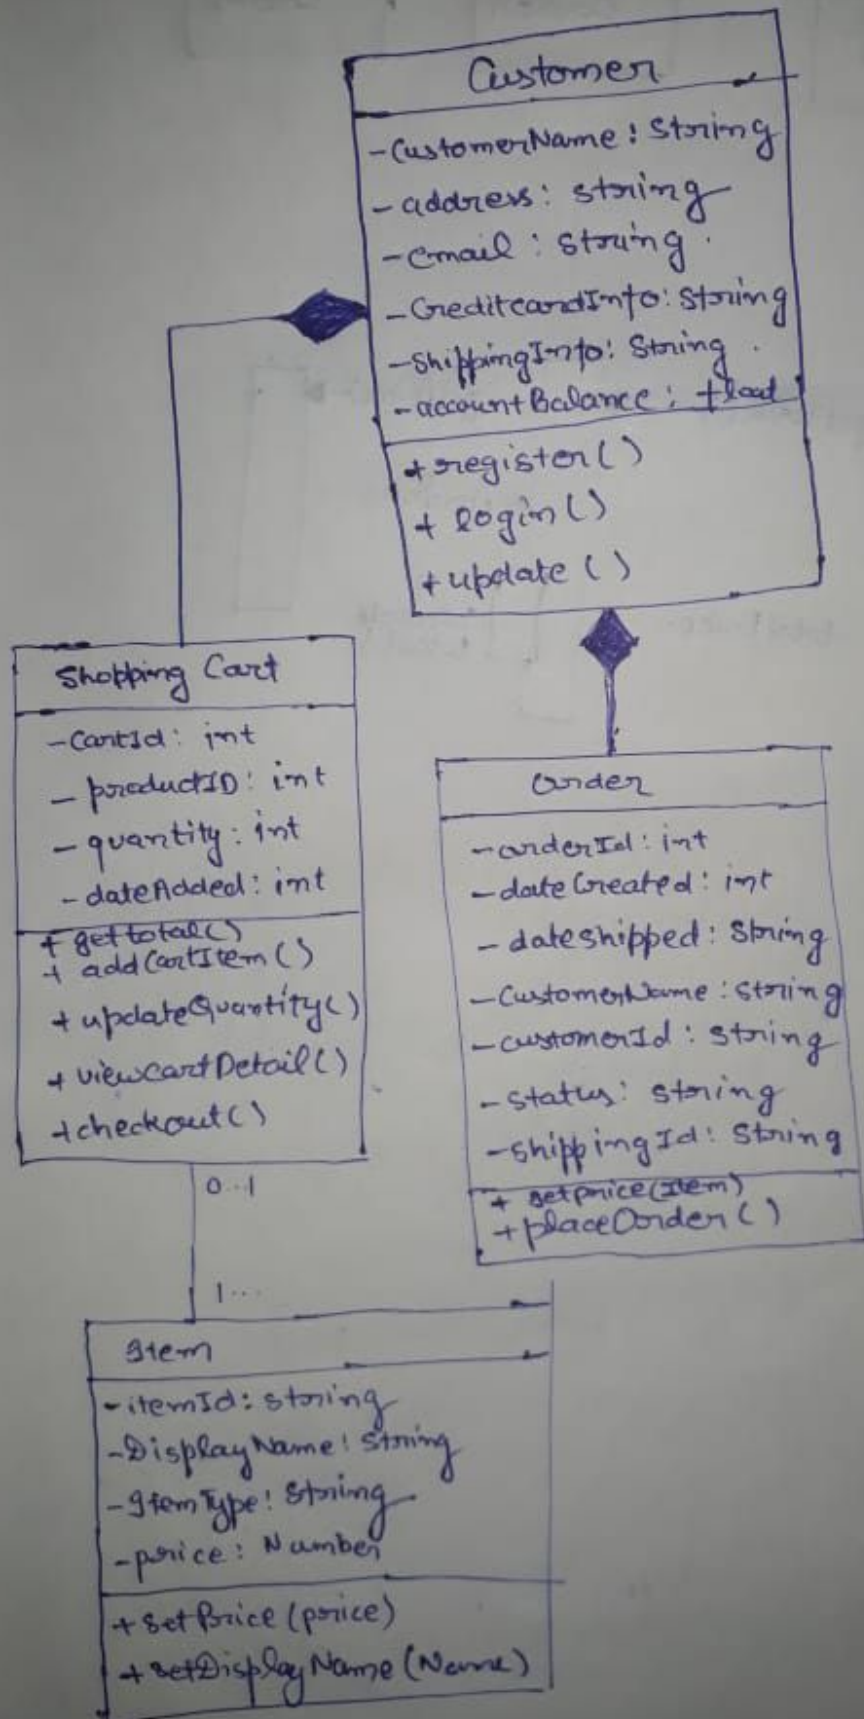 Customer
-CustomerName: String
-address: string
-email: String
-CreditcardInfo: String
-ShippingInfo: String
-accountBalance: float
+register()
+ login()
+update()
Shopping Cart
-CartId: int
-productID: int
-quantity: int
-dateAdded: int
+ gettotal()
+ addCartItem()
+updateQuantity()
+ viewcartDetail()
+checkout()
0..1
1...
Order
-orderId: int
-dateCreated: int
-dateshipped: String
-CustomerName: String
-customerId: String
-Status: String
-ShippingId: String
+ getprice(Item)
+placeOrder()
Item
-itemId: string
-DisplayName: String
-ItemType: String
-price: Number
+setPrice(price)
+setDisplayName(Name)